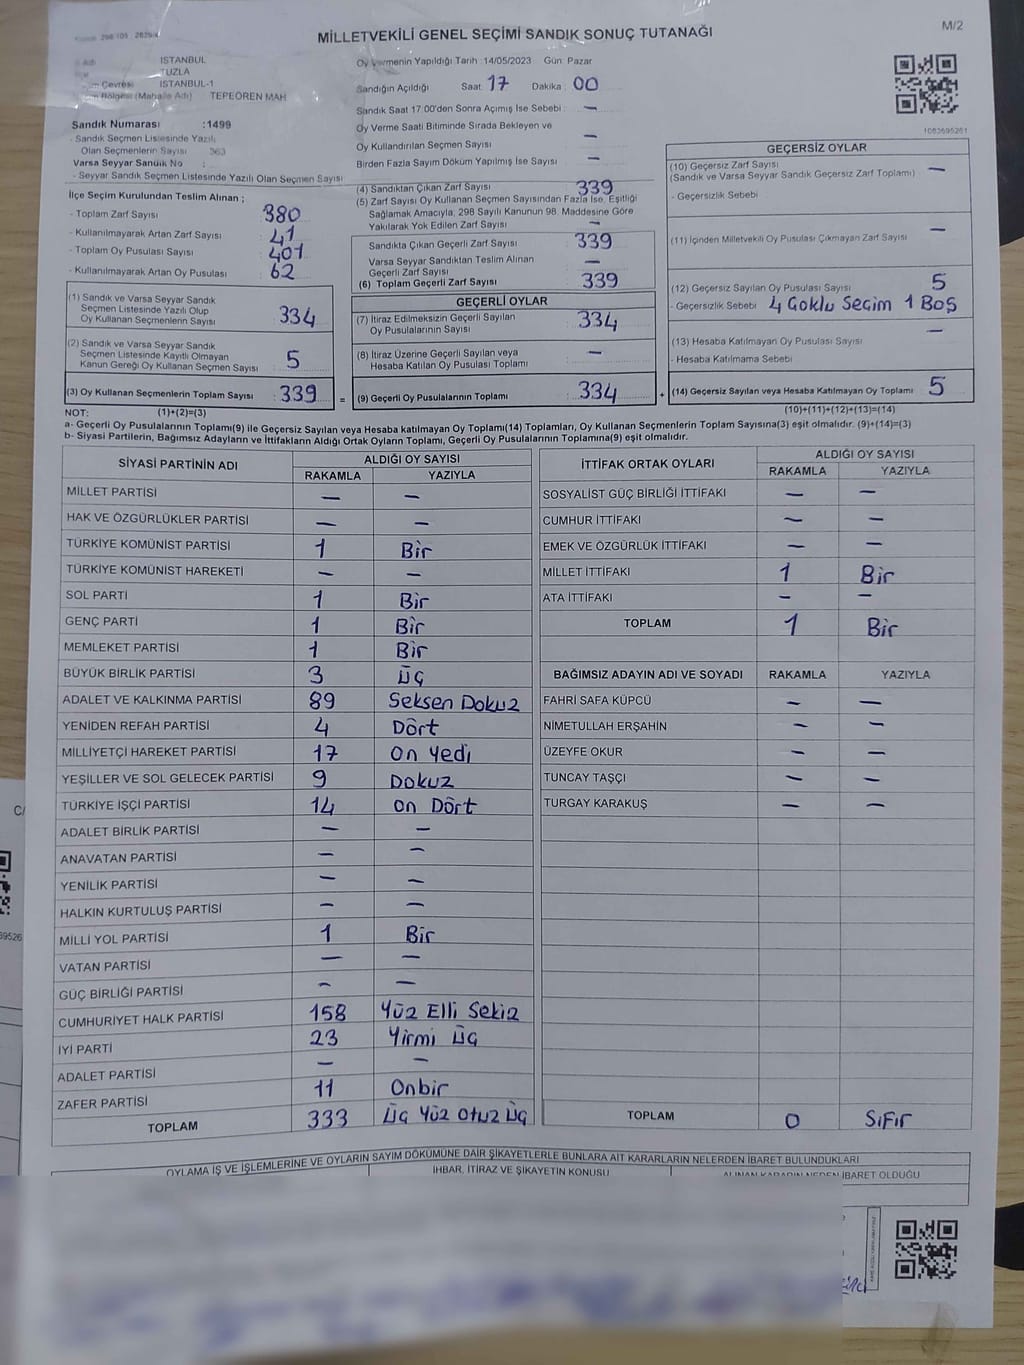 MİLLETVEKİLİ GENEL SEÇİMİ SANDIK SONUÇ TUTANAĞI
M/2
İSTANBUL
TUZLA
İSTANBUL-1
TEPEÖREN MAH
Sandık Numarası :1499
- Sandık Seçmen Listesinde Yazılı
Olan Seçmenlerin Sayısı 363
Varsa Seyyar Sandık No :
- Seyyar Sandık Seçmen Listesinde Yazılı Olan Seçmen Sayısı
Oy Vermenin Yapıldığı Tarih :14/05/2023 Gün: Pazar
Sandığın Açıldığı Saat : 17 Dakika : 00
Sandık Saat 17.00'den Sonra Açılmış İse Sebebi : —
Oy Verme Saati Bitiminde Sırada Bekleyen ve
Oy Kullandırılan Seçmen Sayısı : —
Birden Fazla Sayım Döküm Yapılmış İse Sayısı : —
1083695261
İlçe Seçim Kurulundan Teslim Alınan ;
- Toplam Zarf Sayısı : 380
- Kullanılmayarak Artan Zarf Sayısı : 41
- Toplam Oy Pusulası Sayısı : 401
- Kullanılmayarak Artan Oy Pusulası : 62
(1) Sandık ve Varsa Seyyar Sandık
Seçmen Listesinde Yazılı Olup
Oy Kullanan Seçmenlerin Sayısı : 334
(2) Sandık ve Varsa Seyyar Sandık
Seçmen Listesinde Kayıtlı Olmayan
Kanun Gereği Oy Kullanan Seçmen Sayısı : 5
(3) Oy Kullanan Seçmenlerin Toplam Sayısı : 339 =
(4) Sandıktan Çıkan Zarf Sayısı : 339
(5) Zarf Sayısı Oy Kullanan Seçmen Sayısından Fazla İse, Eşitliği
Sağlamak Amacıyla, 298 Sayılı Kanunun 98. Maddesine Göre
Yakılarak Yok Edilen Zarf Sayısı : —
Sandıkta Çıkan Geçerli Zarf Sayısı : 339
Varsa Seyyar Sandıktan Teslim Alınan
Geçerli Zarf Sayısı : —
(6) Toplam Geçerli Zarf Sayısı : 339
GEÇERLİ OYLAR
(7) İtiraz Edilmeksizin Geçerli Sayılan
Oy Pusulalarının Sayısı : 334
(8) İtiraz Üzerine Geçerli Sayılan veya
Hesaba Katılan Oy Pusulası Toplamı : —
(9) Geçerli Oy Pusulalarının Toplamı : 334 +
GEÇERSİZ OYLAR
(10) Geçersiz Zarf Sayısı
(Sandık ve Varsa Seyyar Sandık Geçersiz Zarf Toplamı) : —
- Geçersizlik Sebebi :
(11) İçinden Milletvekili Oy Pusulası Çıkmayan Zarf Sayısı : —
(12) Geçersiz Sayılan Oy Pusulası Sayısı : 5
- Geçersizlik Sebebi : 4 Çoklu Seçim 1 Boş
(13) Hesaba Katılmayan Oy Pusulası Sayısı : —
- Hesaba Katılmama Sebebi :
(14) Geçersiz Sayılan veya Hesaba Katılmayan Oy Toplamı : 5
NOT: (1)+(2)=(3) (10)+(11)+(12)+(13)=(14)
a- Geçerli Oy Pusulalarının Toplamı(9) ile Geçersiz Sayılan veya Hesaba katılmayan Oy Toplamı(14) Toplamları, Oy Kullanan Seçmenlerin Toplam Sayısına(3) eşit olmalıdır. (9)+(14)=(3)
b- Siyasi Partilerin, Bağımsız Adayların ve İttifakların Aldığı Ortak Oyların Toplamı, Geçerli Oy Pusulalarının Toplamına(9) eşit olmalıdır.
SİYASİ PARTİNİN ADI ALDIĞI OY SAYISI
RAKAMLA YAZIYLA
MİLLET PARTİSİ — —
HAK VE ÖZGÜRLÜKLER PARTİSİ — —
TÜRKİYE KOMÜNİST PARTİSİ 1 Bir
TÜRKİYE KOMÜNİST HAREKETİ — —
SOL PARTİ 1 Bir
GENÇ PARTİ 1 Bir
MEMLEKET PARTİSİ 1 Bir
BÜYÜK BİRLİK PARTİSİ 3 Üç
ADALET VE KALKINMA PARTİSİ 89 Seksen Dokuz
YENİDEN REFAH PARTİSİ 4 Dört
MİLLİYETÇİ HAREKET PARTİSİ 17 On Yedi
YEŞİLLER VE SOL GELECEK PARTİSİ 9 Dokuz
TÜRKİYE İŞÇİ PARTİSİ 14 On Dört
ADALET BİRLİK PARTİSİ — —
ANAVATAN PARTİSİ — —
YENİLİK PARTİSİ — —
HALKIN KURTULUŞ PARTİSİ — —
MİLLİ YOL PARTİSİ 1 Bir
VATAN PARTİSİ — —
GÜÇ BİRLİĞİ PARTİSİ — —
CUMHURİYET HALK PARTİSİ 158 Yüz Elli Sekiz
İYİ PARTİ 23 Yirmi Üç
ADALET PARTİSİ — —
ZAFER PARTİSİ 11 Onbir
TOPLAM 333 Üç Yüz Otuz Üç
İTTİFAK ORTAK OYLARI ALDIĞI OY SAYISI
RAKAMLA YAZIYLA
SOSYALİST GÜÇ BİRLİĞİ İTTİFAKI — —
CUMHUR İTTİFAKI — —
EMEK VE ÖZGÜRLÜK İTTİFAKI — —
MİLLET İTTİFAKI 1 Bir
ATA İTTİFAKI — —
TOPLAM 1 Bir
BAĞIMSIZ ADAYIN ADI VE SOYADI RAKAMLA YAZIYLA
FAHRİ SAFA KÜPCÜ — —
NİMETULLAH ERŞAHİN — —
ÜZEYFE OKUR — —
TUNCAY TAŞÇI — —
TURGAY KARAKUŞ — —
TOPLAM 0 Sıfır
OYLAMA İŞ VE İŞLEMLERİNE VE OYLARIN SAYIM DÖKÜMÜNE DAİR ŞİKAYETLERLE BUNLARA AİT KARARLARIN NELERDEN İBARET BULUNDUKLARI
İHBAR, İTİRAZ VE ŞİKAYETİN KONUSU
ALINAN KARARIN NEDEN İBARET OLDUĞU
C/
69526